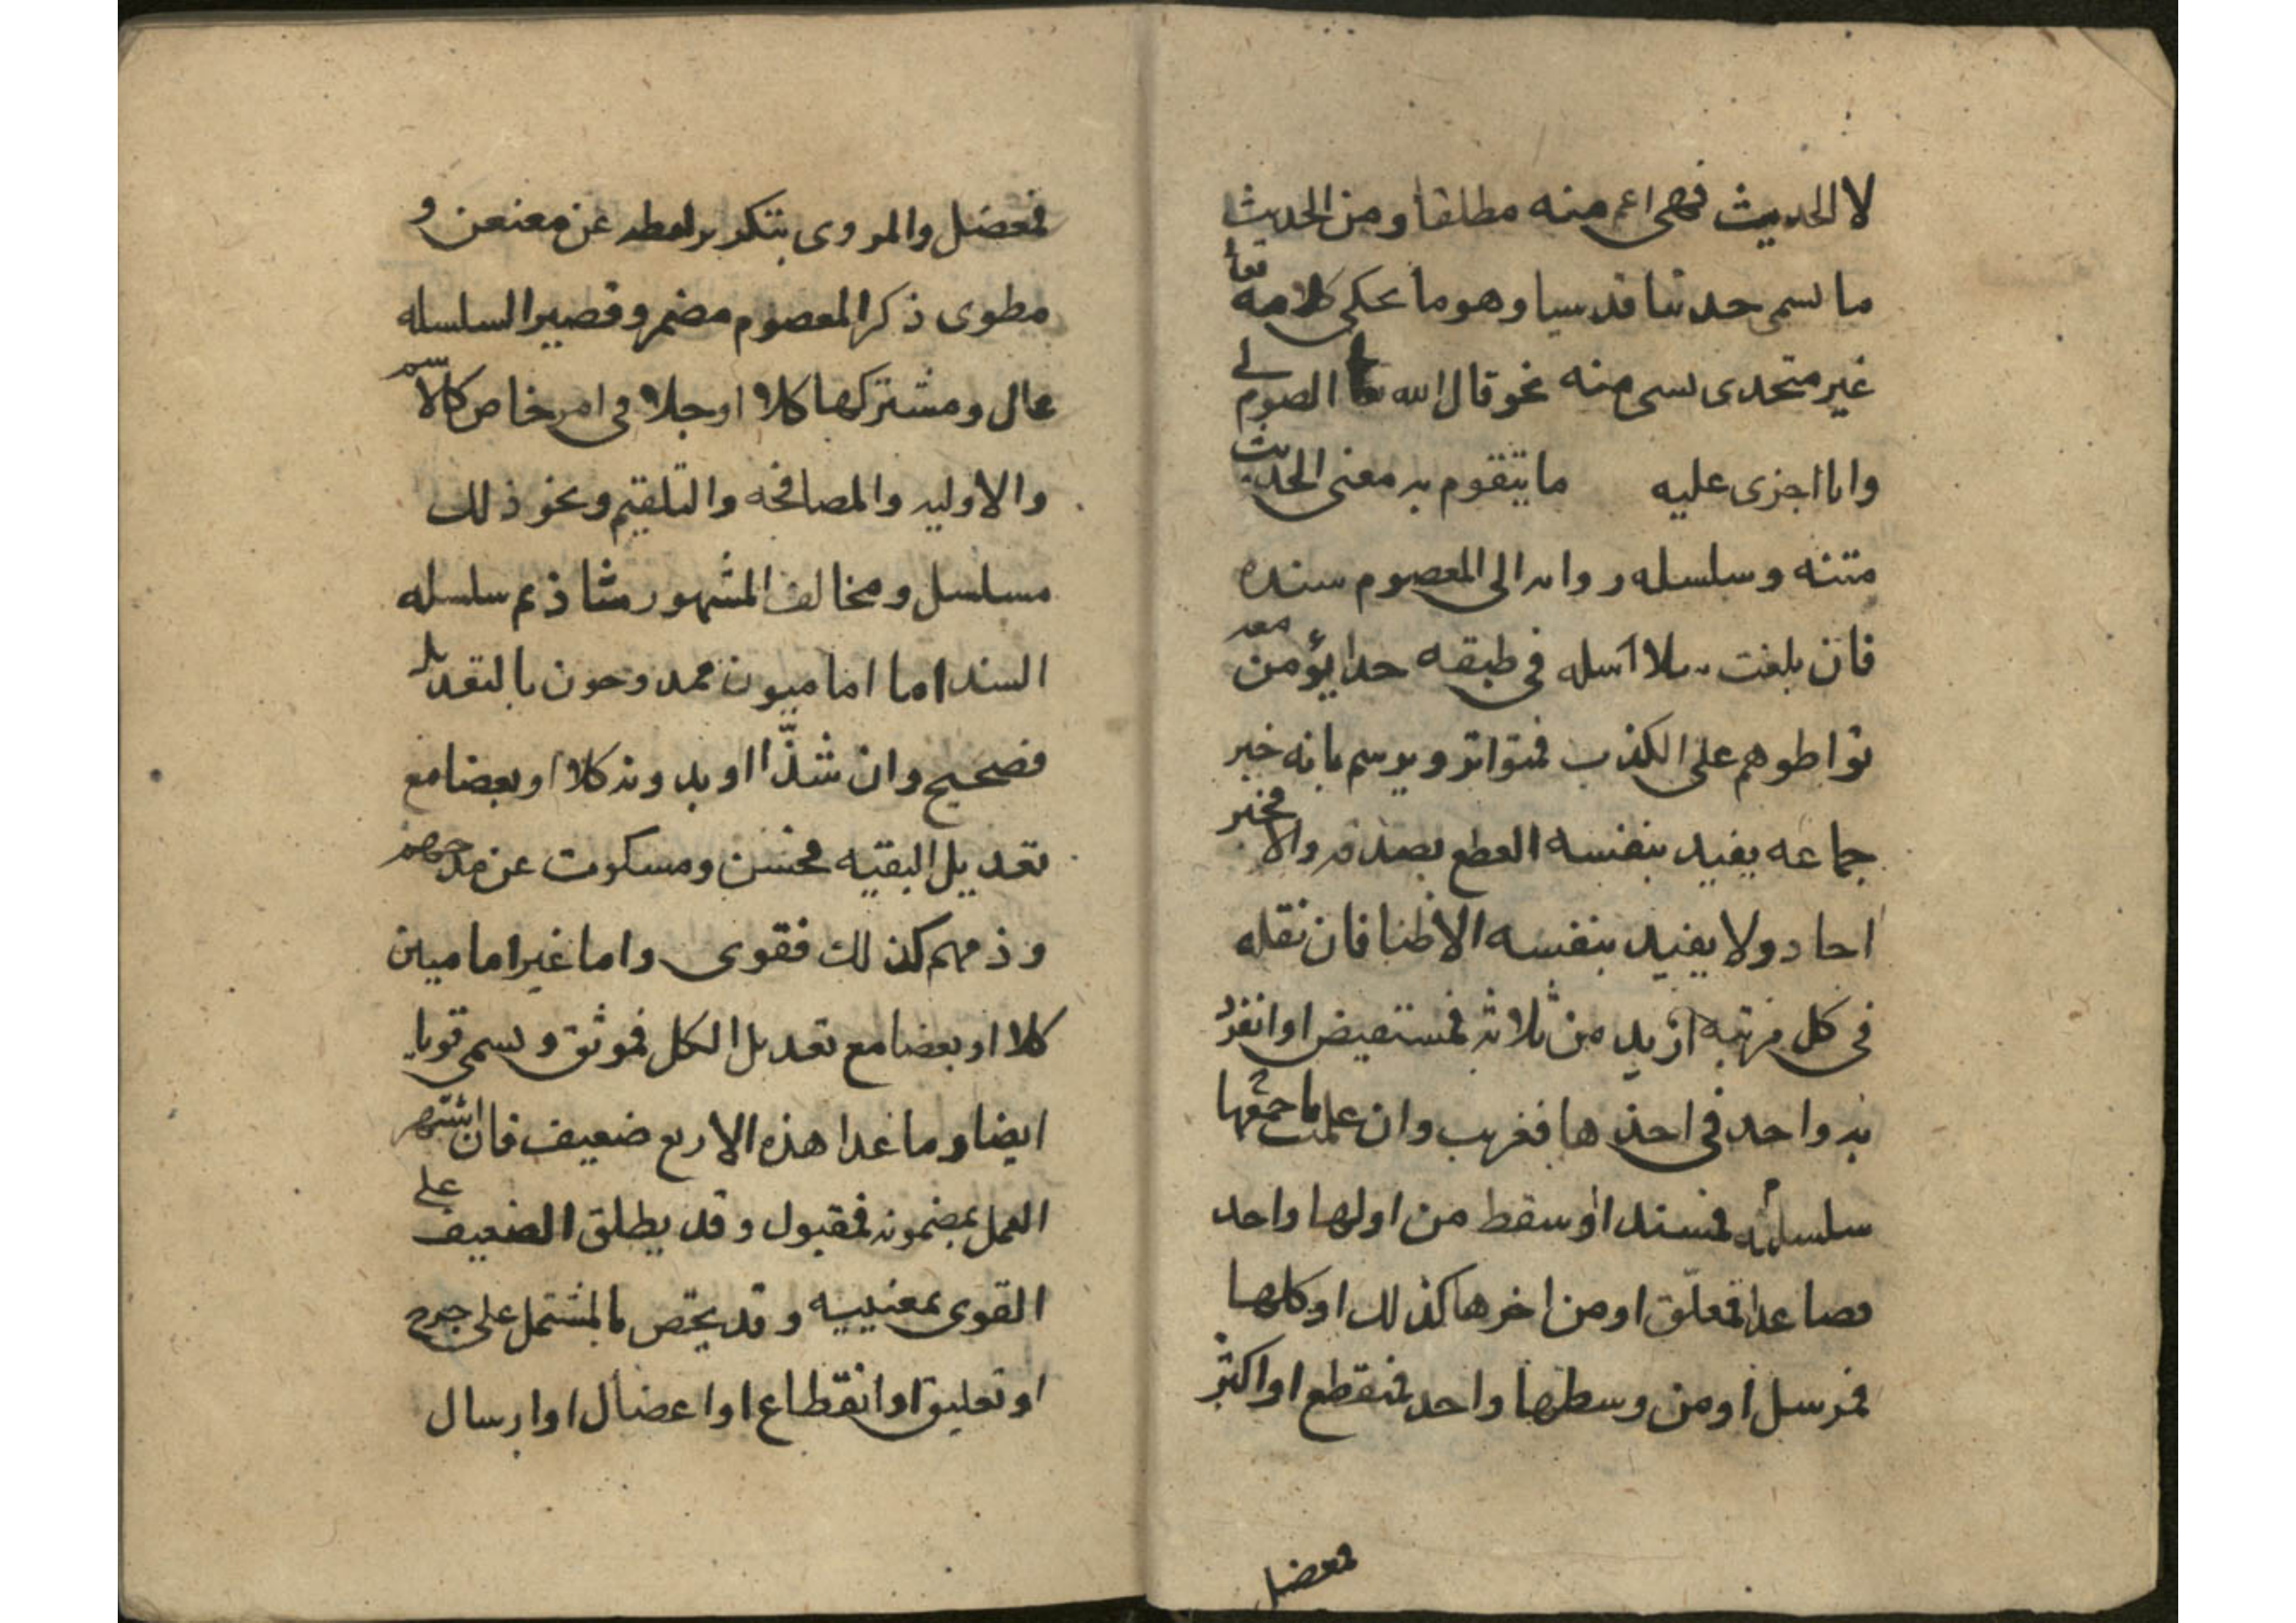 لا الحديث فهى اعم منه مطلقا ومن الحديث
ما يسمى حديثا قدسيا وهو ما يحكى كلامه تعا
غير متحدى بشى منه نحو قال الله تعا الصوم لى
وانا اجزى عليه ما يتقوم به معنى الحديث
متنه وسلسله رواته الى المعصوم سنده
فان بلغت سلاسله فى طبقه حدا يؤمن معه
تواطوهم على الكذب فمتواتر ويرسم بانه خبر
جماعه يفيد بنفسه القطع بصدقه والا فخبر
احاد ولا يفيد بنفسه الا ظنا فان نقله
فى كل مرتبه ازيد من ثلاثه فمستفيض او انفرد
به واحد فى احدها فغريب وان علمت باجمعها
سلسلته فمسند او سقط من اولها واحد
فصاعدا فمعلّق او من اخرها كذلك او كلها
فمرسل او من وسطها واحد فمنقطع او اكثر
فمعضل
فمعضل والمروى بتكرير لفظه عن معنعن و
مطوى ذكر المعصوم مضمر وقصير السلسله
عال ومشتركها كلا او جلا فى امر خاص كالاسم
والاوليه والمصافحه والتلقيم ونحو ذلك
مسلسل ومخالف المشهور شاذ ثم سلسله
السند اما اماميون ممدوحون بالتعديل
فصحيح وان شذّ او بدونه كلا او بعضا مع
تعديل البقيه فحسن ومسكوت عن مدحهم
وذمهم كذلك فقوى واما غير اماميين
كلا او بعضا مع تعديل الكل فموثق ويسمى قويا
ايضا وما عدا هذه الاربع ضعيف فان اشتهر
العمل بمضمونه فمقبول وقد يطلق الضعيف على
القوى بمعنييه وقد يخص بالمشتمل على جرح
او تعليق او انقطاع او اعضال او ارسال